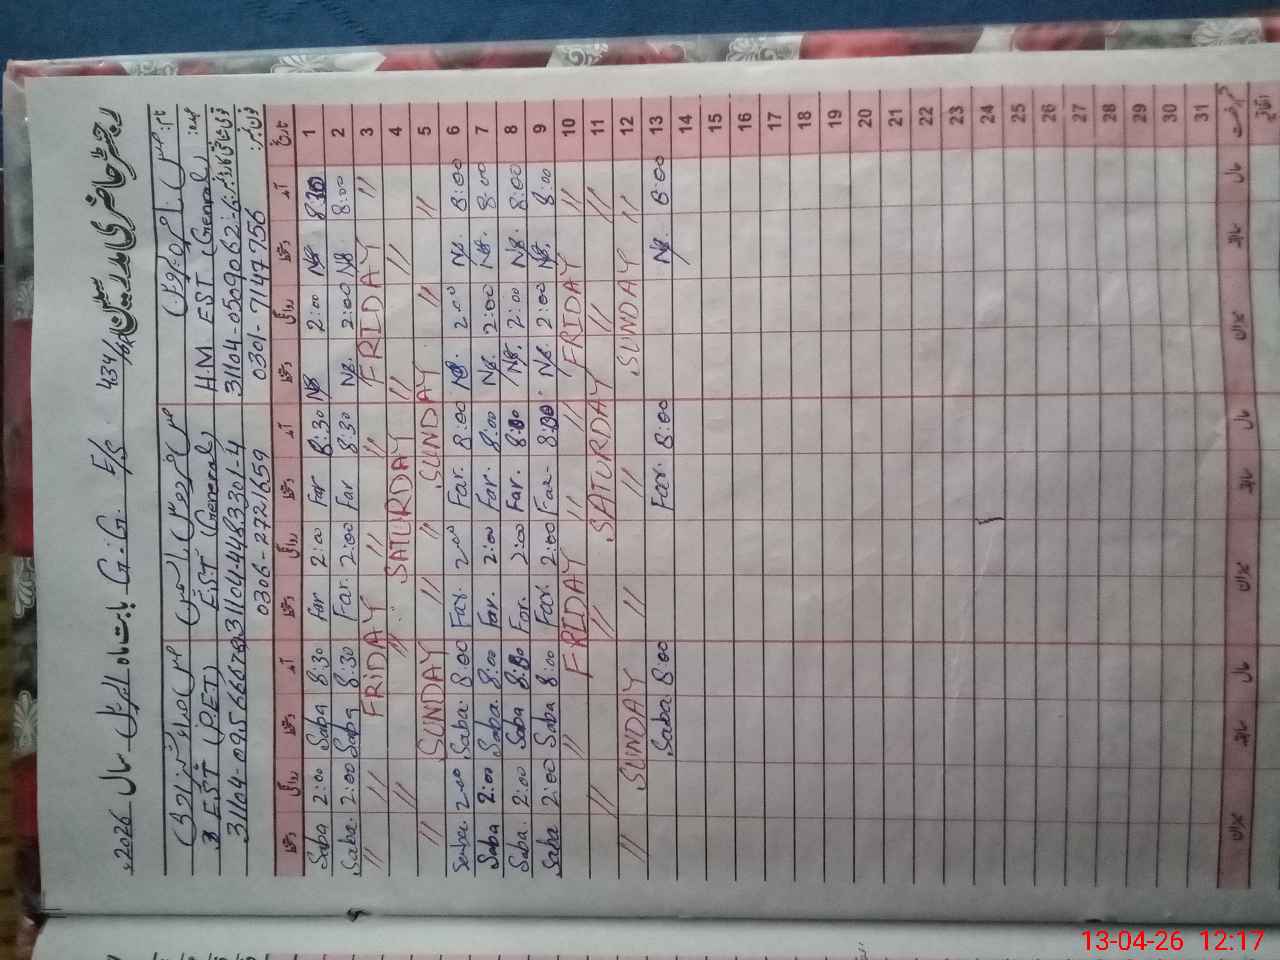 رجسٹر حاضری مدرسین 434/6R E/S G.G. بابت ماہ اپریل سال 2026ء
نام:
عہدہ: H.M EST (General) EST (General) EST (P.E.T)
31104-0509062-6 31104-4483301-4
فون نمبر: 0301-7147756 0306-2721659
تاریخ آمد دستخط روانگی دستخط آمد دستخط روانگی دستخط آمد دستخط روانگی دستخط
1 8:30 NB 2:00 NB 8:30 Far 2:00 Far 8:30 Saba 2:00 Saba
2 8:00 NB 2:00 NB. 8:30 Far 2:00 Far. 8:30 Saba 2:00 Saba.
3 // FRIDAY // // FRIDAY // //
4 // // SATURDAY // //
5 // // SUNDAY // // SUNDAY //
6 8:00 NB. 2:00 NB. 8:00 Far. 2:00 Far. 8:00 Saba. 2:00 Saba.
7 8:00 NB. 2:00 NB. 8:00 Far. 2:00 Far. 8:00 Saba. 2:00 Saba
8 8:00 NB. 2:00 NB. 8:00 Far. 2:00 Far. 8:00 Saba 2:00 Saba.
9 8:00 NB. 2:00 NB. 8:00 Far. 2:00 Far. 8:00 Saba 2:00 Saba
10 // FRIDAY // // FRIDAY //
11 // // SATURDAY // //
12 // SUNDAY // // SUNDAY //
13 8:00 NB. 8:00 Far. 8:00 Saba.
14
15
16
17
18
19
20
21
22
23
24
25
26
27
28
29
30
31
حال سابقہ میزان حال سابقہ میزان حال سابقہ میزان
13-04-26 12:17